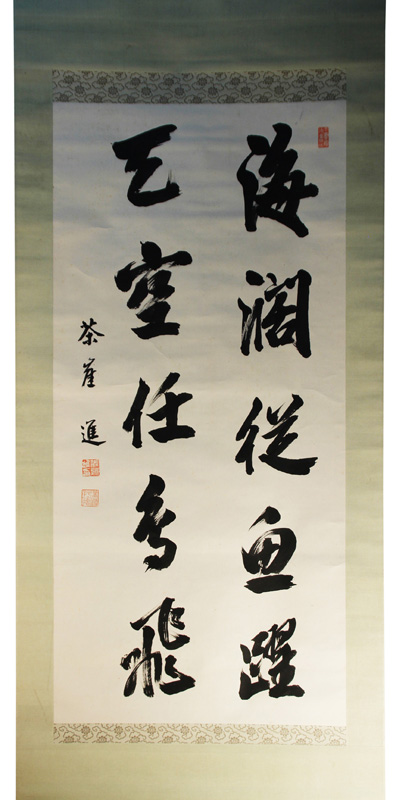 海濶從魚躍
天空任鳥飛
茶崖進